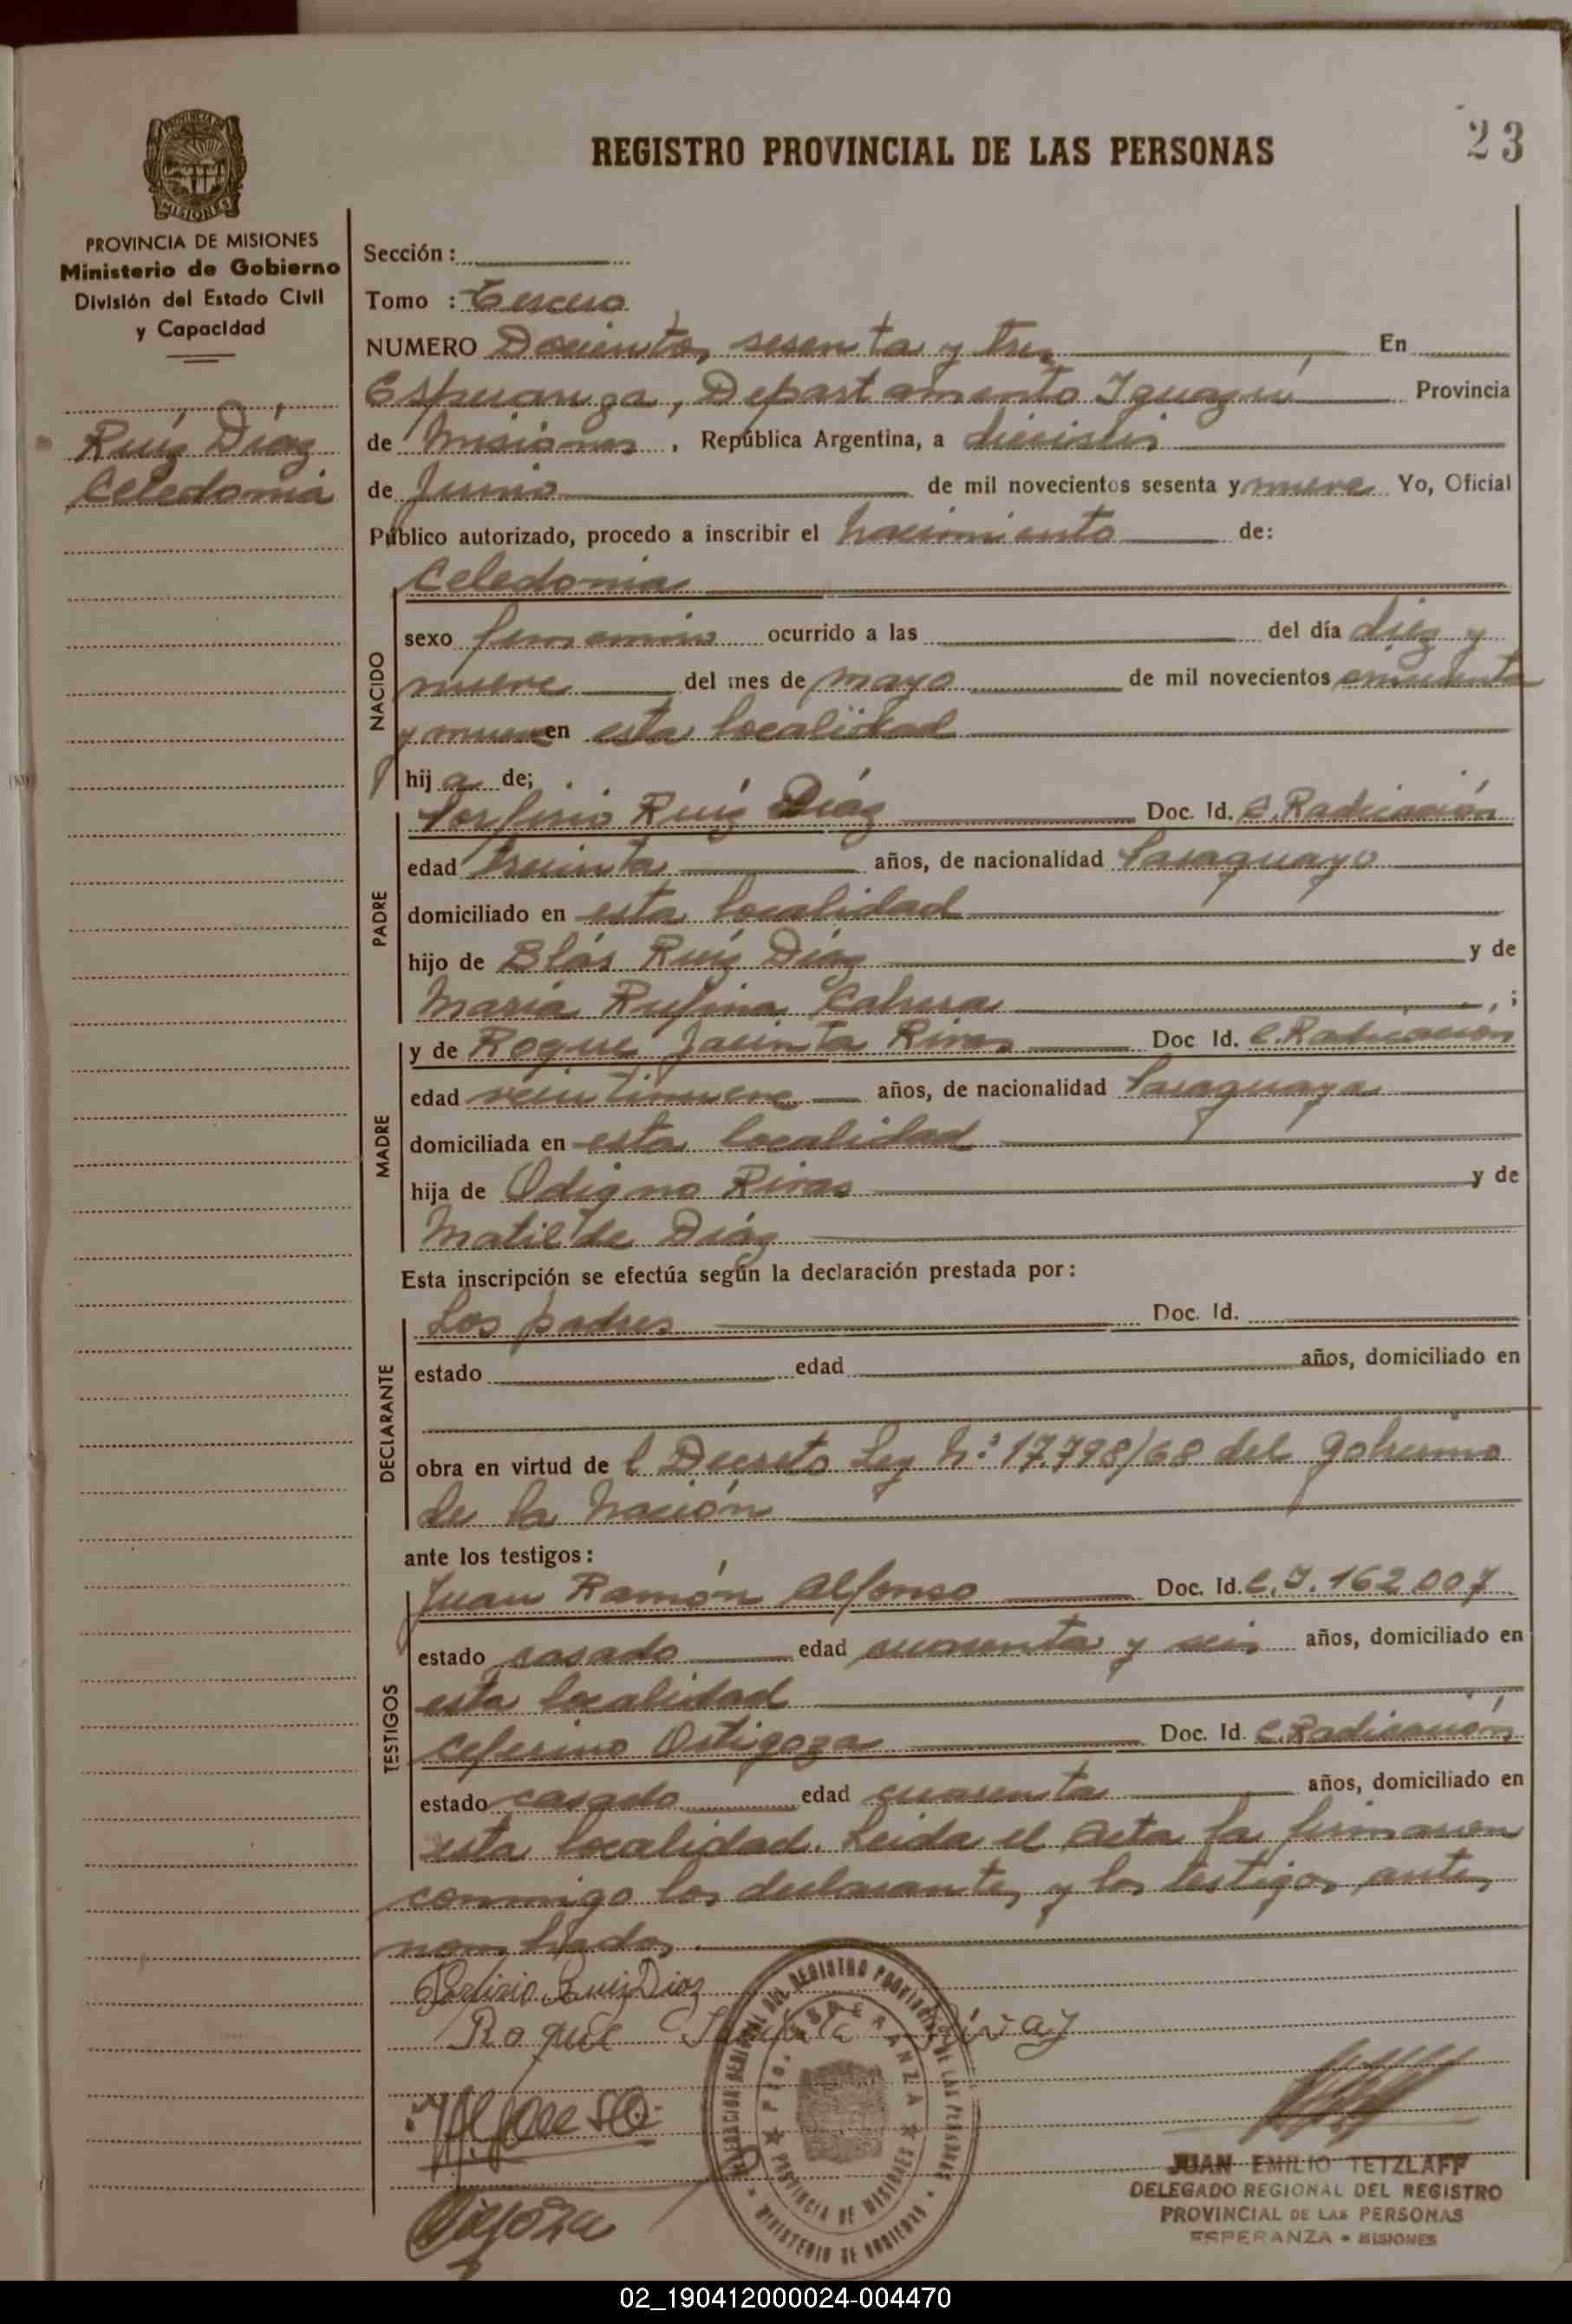 REGISTRO PROVINCIAL DE LAS PERSONAS
23
MISIONES
PROVINCIA DE MISIONES
Ministerio de Gobierno
División del Estado Civil
y Capacidad
Ruíz Díaz
Celedonia
Sección :
Tomo : Tercero
NUMERO Docientos sesenta y tres En
Esperanza, Departamento Iguazú Provincia
de Misiones, República Argentina, a dieciséis
de Junio de mil novecientos sesenta y nueve Yo, Oficial
Público autorizado, procedo a inscribir el nacimiento de:
NACIDO
Celedonia
sexo femenino ocurrido a las del día diez y
nueve del mes de mayo de mil novecientos cincuenta
y nueve en esta localidad
hija de;
PADRE
Porfirio Ruíz Díaz Doc. Id. C. Radicación
edad treinta años, de nacionalidad Paraguayo
domiciliado en esta localidad
hijo de Blás Ruíz Díaz y de
María Rufina Cabrera ;
MADRE
y de Roque Jacinta Rivas Doc Id. C. Radicación
edad veintinueve años, de nacionalidad Paraguaya
domiciliada en esta localidad
hija de Odigno Rivas y de
Matilde Díaz
Esta inscripción se efectúa según la declaración prestada por:
DECLARANTE
Los padres Doc. Id.
estado edad años, domiciliado en
obra en virtud de l Decreto Ley Nº 17.798/68 del gobierno
de la Nación
ante los testigos:
TESTIGOS
Juan Ramón Alfonso Doc. Id. C.I. 162.007
estado casado edad cuarenta y seis años, domiciliado en
esta localidad
Ceferino Ortigoza Doc. Id. C. Radicación
estado casado edad cuarenta años, domiciliado en
esta localidad. Leida el Acta la firmaron
conmigo los declarantes y los testigos antes
nombrados.
Porfirio Ruiz Diaz
Roque Jacinta Rivas
Alfonso
Ortigoza
DELEGACION REGIONAL DEL REGISTRO PROVINCIAL DE LAS PERSONAS
PTO. ESPERANZA
PROVINCIA DE MISIONES
MINISTERIO DE GOBIERNO
JUAN EMILIO TETZLAFF
DELEGADO REGIONAL DEL REGISTRO
PROVINCIAL DE LAS PERSONAS
ESPERANZA - MISIONES
02_190412000024-004470